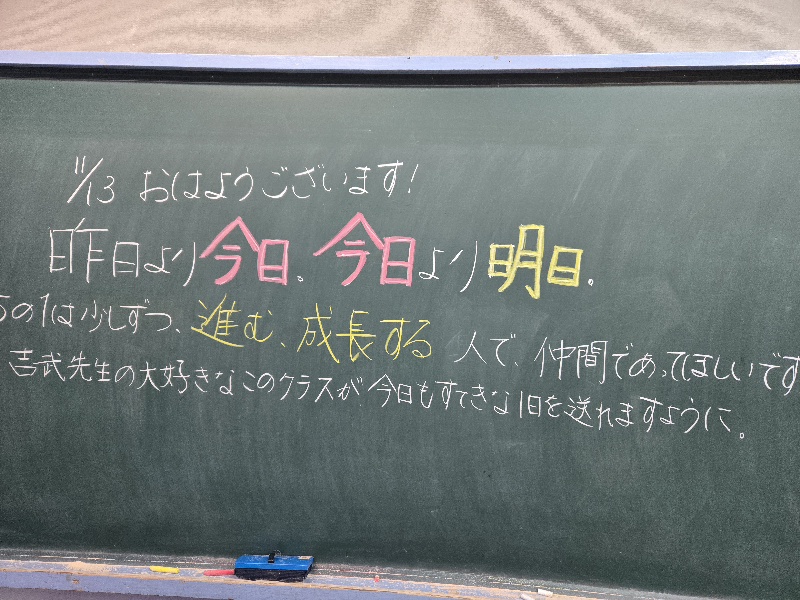 11/13 おはようございます!
昨日より今日。今日より明日。
5の1は少しずつ、進む、成長する 人で、仲間であってほしいです
吉武先生の大好きなこのクラスが今日もすてきな1日を送れますように。